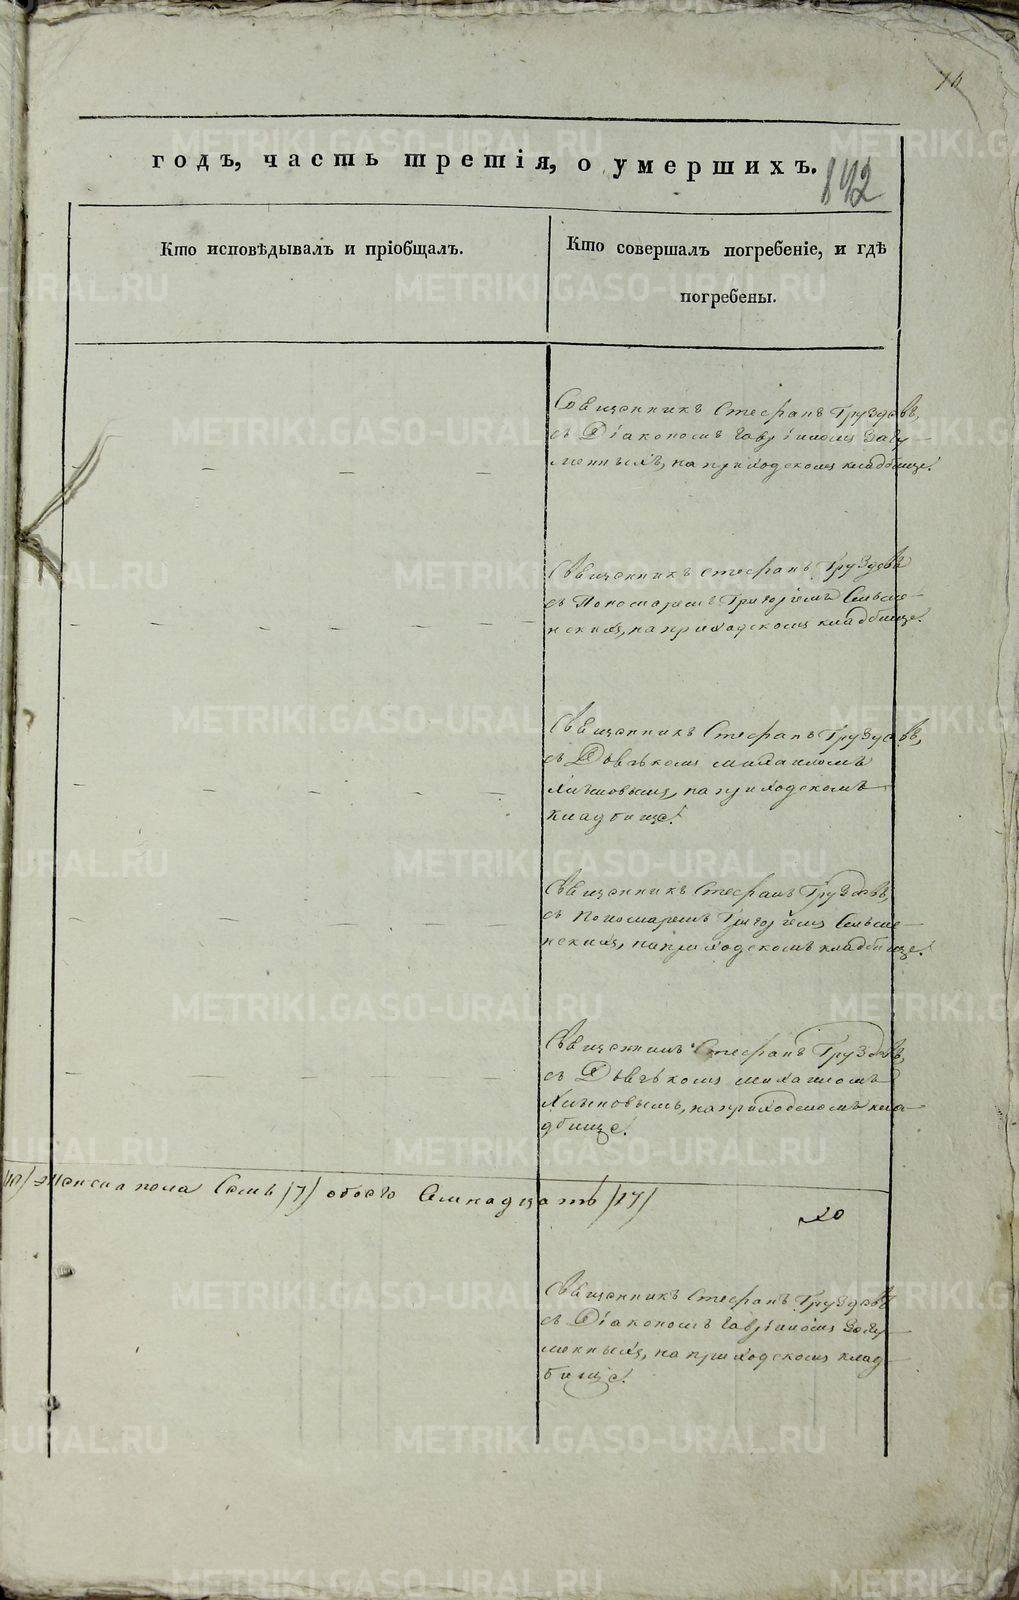 годъ, часть третія, о умершихъ.
842
Кто исповѣдывалъ и пріобщалъ.
Кто совершалъ погребеніе, и гдѣ
погребены.
Священникъ Стефанъ Груздевъ,
съ Діакономъ Гавріиломъ Загу-
менныхъ, на приходскомъ кладбище.
Священникъ Стефанъ Груздевъ
съ Пономаремъ Григоріемъ
на приходскомъ кладбище.
Священникъ Стефанъ Груздевъ,
съ Дьячкомъ Михаиломъ
на приходскомъ
кладбище.
Священникъ Стефанъ Груздевъ,
съ Пономаремъ Григоріемъ
на приходскомъ кладбище.
Священникъ Стефанъ Груздевъ,
съ Дьячкомъ Михаиломъ
на приходскомъ кла-
дбище.
/10/ женска пола Семь /7/ обоего Семнадцать /17/
Священникъ Стефанъ Груздевъ
съ Діакономъ Гавріиломъ Загу-
менныхъ, на приходскомъ клад-
бище.
METRIKI.GASO-URAL.RU